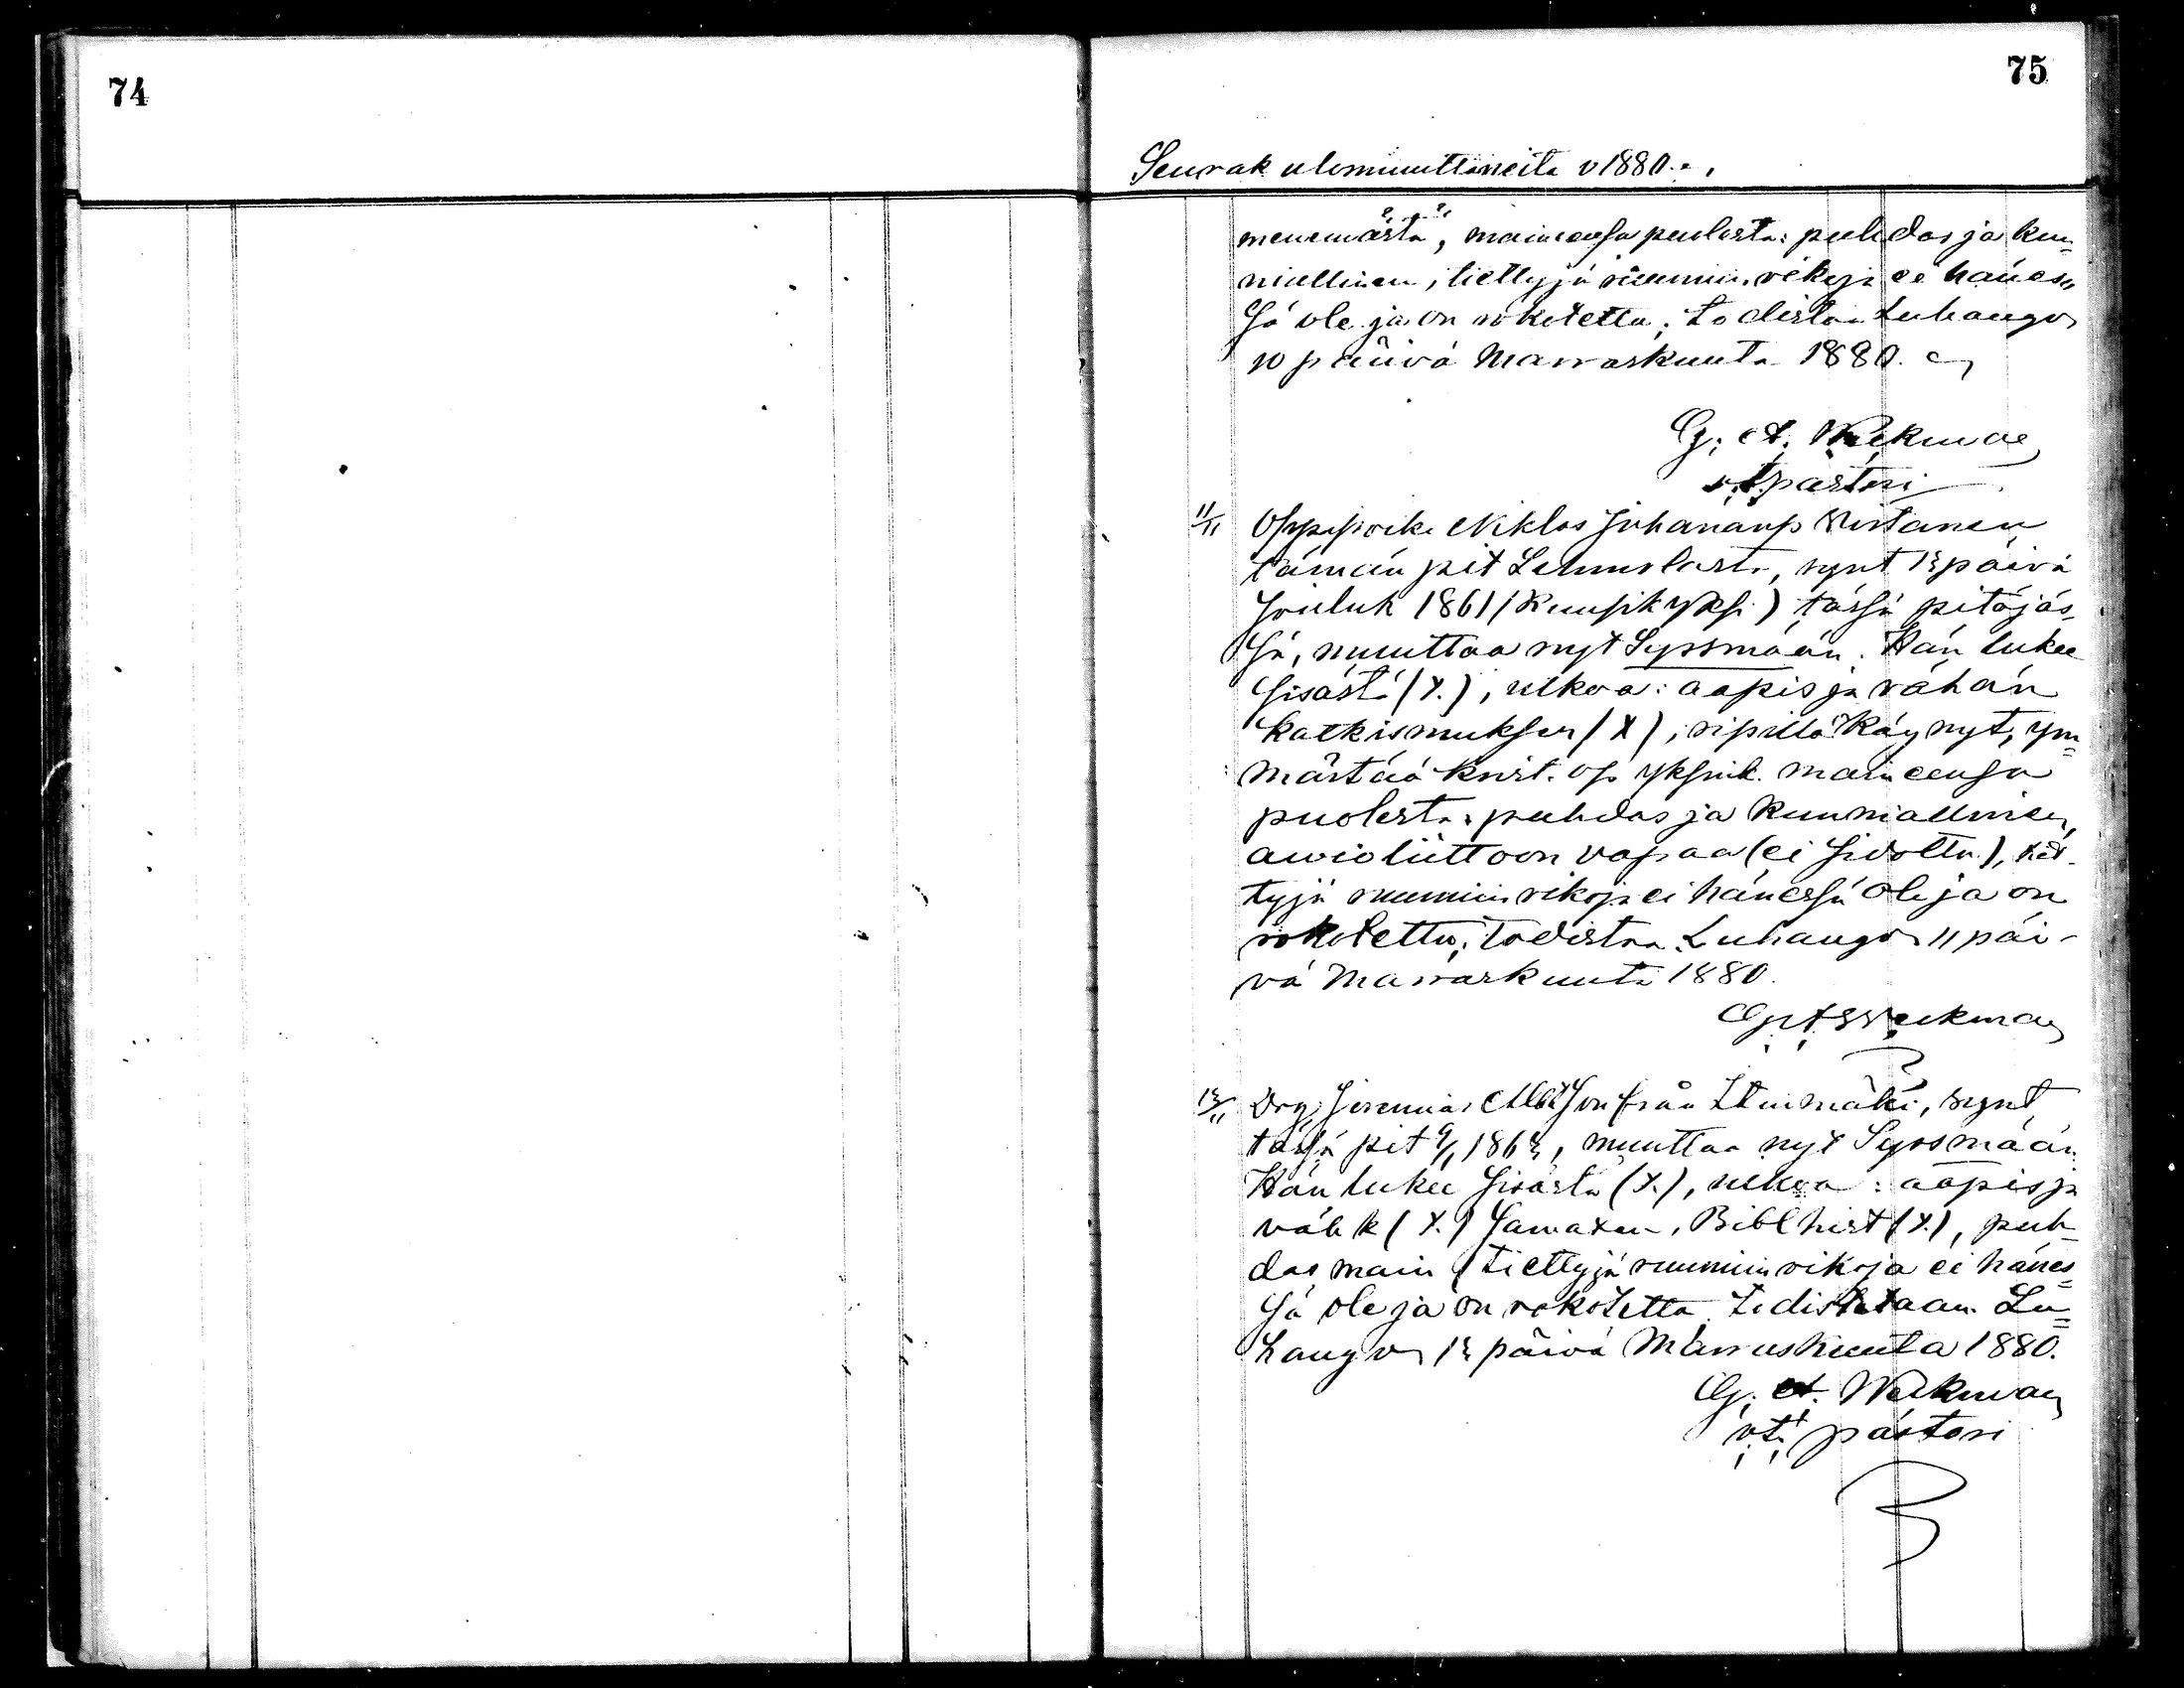 74
75
Seurak ulosmuuttaneita v 1880.
menemästä, maineensa puolesta: puhdas ja kun=
niallinen, tiettyjä ruumiin vikoja ei hänes=
sä ole ja on rokotettu; todistaa Luhangos
10 päivä Marraskuuta 1880.
G. A. Weckman
v.t. pastori
11/11 Oppipoika Niklas Juhananp
tämän pit Lemmolasta, synt 13 päivä
Jouluk 1861 (kuusik yksi) tässä pitäjäs=
sä, muuttaa nyt Syssmään. Hän lukee
sisästä (X.), ulkoa: aapis ja vähän
katkismuksen (X), ripillä käynyt, ym=
märtää krist. op yksink. maineensa
puolesta puhdas ja kunniallinen,
awioliittoon vapaa (ei sidottu), tiet-
tyjä ruumiin vikoja ei hänessä ole ja on
rokotettu; todistaa Luhangos 11 päi-
vä Marraskuuta 1880.
G A Weckman
13/11 Drg. Jeremias Matsson från, synt
tässä pit 9/1 1863, muuttaa nyt Syssmään
Hän lukee sisästä (X.), ulkoa: aapis ja
väh k (X.) samaten, Bibl hist (X.), puh=
das main tiettyjä ruumiin vikoja ei hänes=
sä ole ja on rokotettu todistetaan Lu=
hangos 13 päivä Marraskuuta 1880.
G. A. Weckman
v.t. pastori